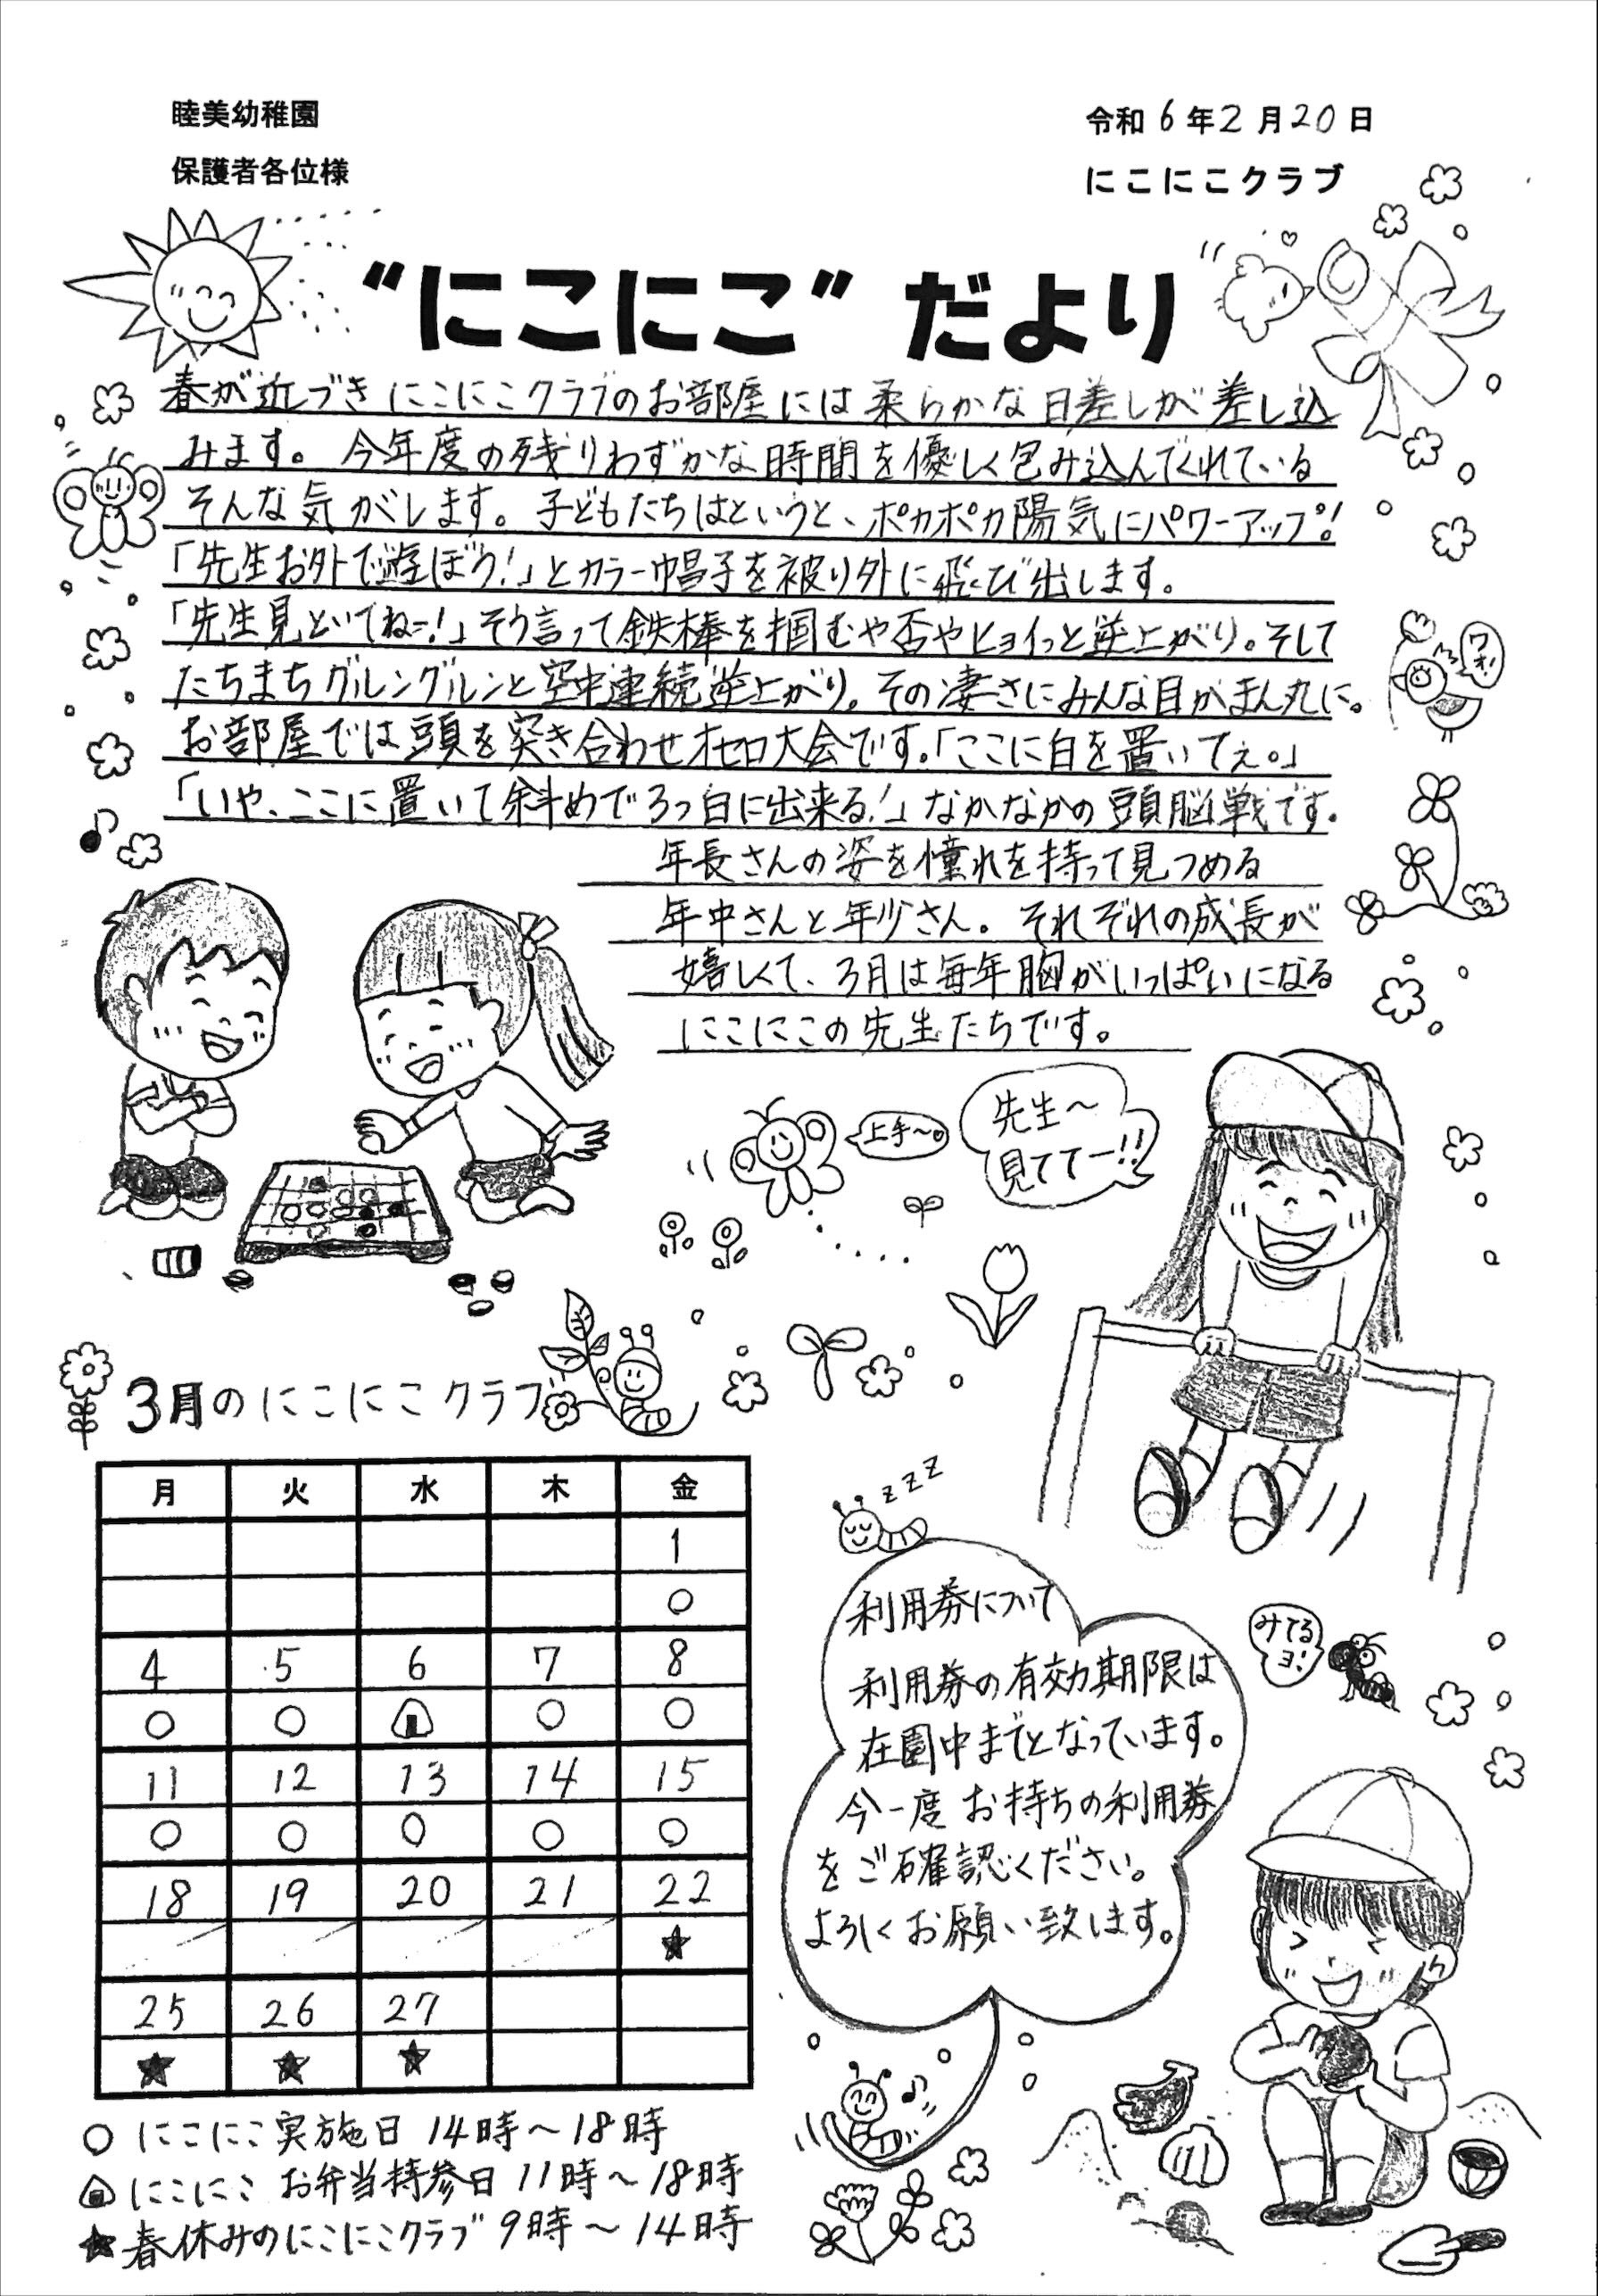 睦美幼稚園
保護者各位様
令和6年2月20日
にこにこクラブ
“にこにこ” だより
春が近づきにこにこクラブのお部屋には柔らかな日差しが差し込
みます。今年度の残りわずかな時間を優しく包み込んでくれている
そんな気がします。子どもたちはというと、ポカポカ陽気にパワーアップ!
「先生お外で遊ぼう!」とカラー帽子を被り外に飛び出します。
「先生見といてねー!」そう言って鉄棒を掴むや否やヒョイっと逆上がり。そして
たちまちグルングルンと空中連続逆上がり。その凄さにみんな目がまん丸に。
お部屋では頭を突き合わせオセロ大会です。「ここに白を置いてぇ。」
「いや、ここに置いて斜めで3つ白に出来る!」なかなかの頭脳戦です。
年長さんの姿を憧れを持って見つめる
年中さんと年少さん。それぞれの成長が
嬉しくて、3月は毎年胸がいっぱいになる
にこにこの先生たちです。
ワオ!
上手〜。
先生〜
見ててー!!
3月のにこにこクラブ
月 火 水 木 金
1
○
4 5 6 7 8
○ ○ ○ ○
11 12 13 14 15
○ ○ ○ ○ ○
18 19 20 21 22
★
25 26 27
★ ★ ★
○ にこにこ実施日 14時〜18時
にこにこ お弁当持参日 11時〜18時
★ 春休みのにこにこクラブ 9時〜14時
zzz
利用券について
利用券の有効期限は
在園中までとなっています。
今一度お持ちの利用券
をご確認ください。
よろしくお願い致します。
みてる
ヨ!